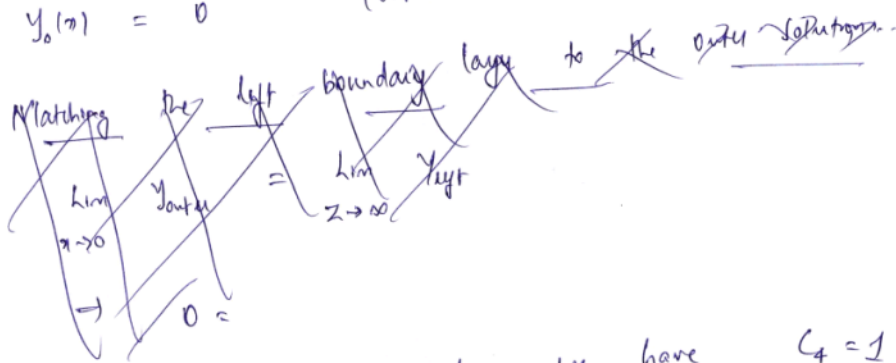 y₀(x) = 0
Matching the left boundary layer to the outer solution..
Lim x→0 Youter = Lim z→∞ Yleft
→ 0 =
have C₄ = 1